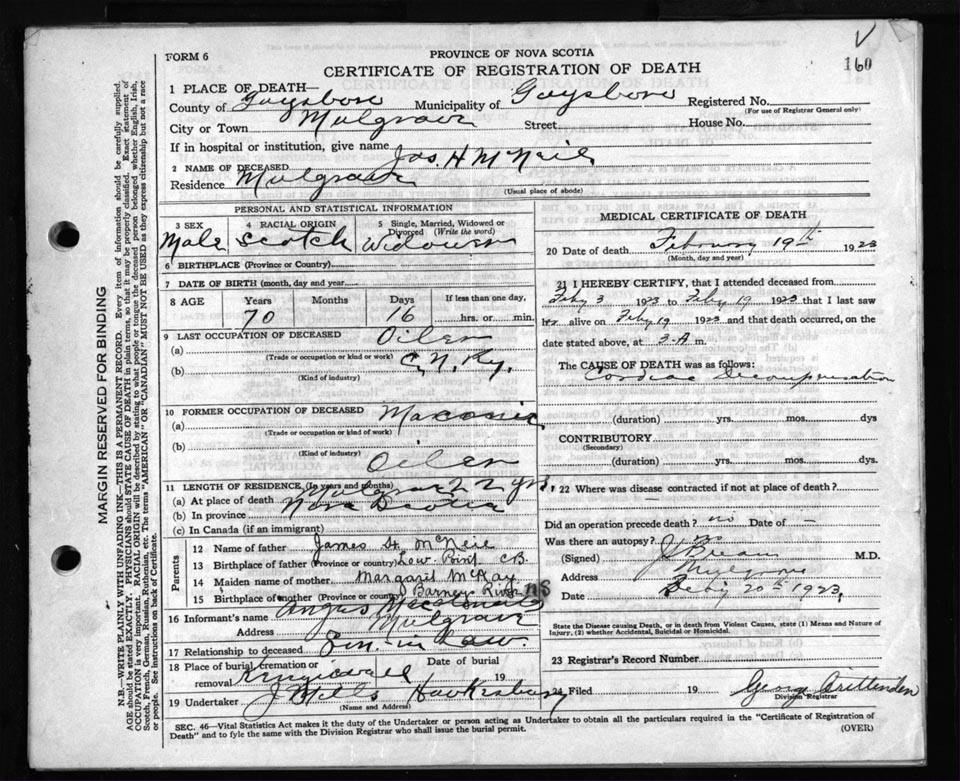 FORM 6
PROVINCE OF NOVA SCOTIA
160
CERTIFICATE OF REGISTRATION OF DEATH
1 PLACE OF DEATH—
County of Guysboro Municipality of Guysboro Registered No.
(For use of Registrar General only)
City or Town Mulgrave Street House No.
If in hospital or institution, give name
2 NAME OF DECEASED Jas. H McNeil
Residence Mulgrave
(Usual place of abode)
PERSONAL AND STATISTICAL INFORMATION
3 SEX 4 RACIAL ORIGIN 5 Single, Married, Widowed or Divorced (Write the word)
Male Scotch Widower
6 BIRTHPLACE (Province or Country)
7 DATE OF BIRTH (month, day and year)
8 AGE Years Months Days If less than one day,
70 16 hrs. or min.
9 LAST OCCUPATION OF DECEASED
(a) Oiler
(Trade or occupation or kind of work)
(b) C. N. Ry.
(Kind of industry)
10 FORMER OCCUPATION OF DECEASED
(a)
(Trade or occupation or kind of work)
(b)
(Kind of industry)
Oiler
11 LENGTH OF RESIDENCE (In years and months)
(a) At place of death Mulgrave 22 yrs.
(b) In province Nova Scotia
(c) In Canada (if an immigrant)
Parents
12 Name of father James H. McNeil
13 Birthplace of father (Province or country) Low Point C.B.
14 Maiden name of mother Margaret McKay
15 Birthplace of mother (Province or country) Barneys River NS
16 Informant's name Angus Macdonald
Address Mulgrave
17 Relationship to deceased Son in Law
18 Place of burial, cremation or removal Date of burial
19 Undertaker J Mills Hawksbury
(Name and Address)
MEDICAL CERTIFICATE OF DEATH
20 Date of death February 19th 1923
(Month, day and year)
21 I HEREBY CERTIFY, that I attended deceased from
Feby 3 1923 to Feby 19 1923 that I last saw
alive on Feby 19 1923 and that death occurred, on
date stated above, at 3 A m.
The CAUSE OF DEATH was as follows:
Cardiac Decompensation
(duration) yrs. mos. dys
CONTRIBUTORY
(Secondary)
(duration) yrs. mos. days
22 Where was disease contracted if not at place of death?
Did an operation precede death? no Date of —
Was there an autopsy? no
(Signed) M.D.
Address Mulgrave
Date Feby 20th 1923
State the Disease causing Death, or in death from Violent Causes, state (1) Means and Nature of
Injury, (2) whether Accidental, Suicidal or Homicidal.
23 Registrar's Record Number
24 Filed 19 George Crittenden
Division Registrar
SEC. 46—Vital Statistics Act makes it the duty of the Undertaker or person acting as Undertaker to obtain all the particulars required in the "Certificate of Registration of
Death" and to fyle the same with the Division Registrar who shall issue the burial permit. (OVER)
MARGIN RESERVED FOR BINDING
N.B.—WRITE PLAINLY WITH UNFADING INK—THIS IS A PERMANENT RECORD. Every item of information should be carefully supplied.
AGE should be stated EXACTLY. PHYSICIANS should STATE CAUSE OF DEATH in plain terms, so that it may be properly classified. Exact statement of
OCCUPATION is very important. RACIAL ORIGIN will be described by stating to what people or tongue the deceased person belonged whether English, Irish,
Scotch, French, German, Russian, Ruthenian, etc. The terms "AMERICAN" OR "CANADIAN" MUST NOT BE USED as they express citizenship but not a race
of people. See instructions on back of Certificate.